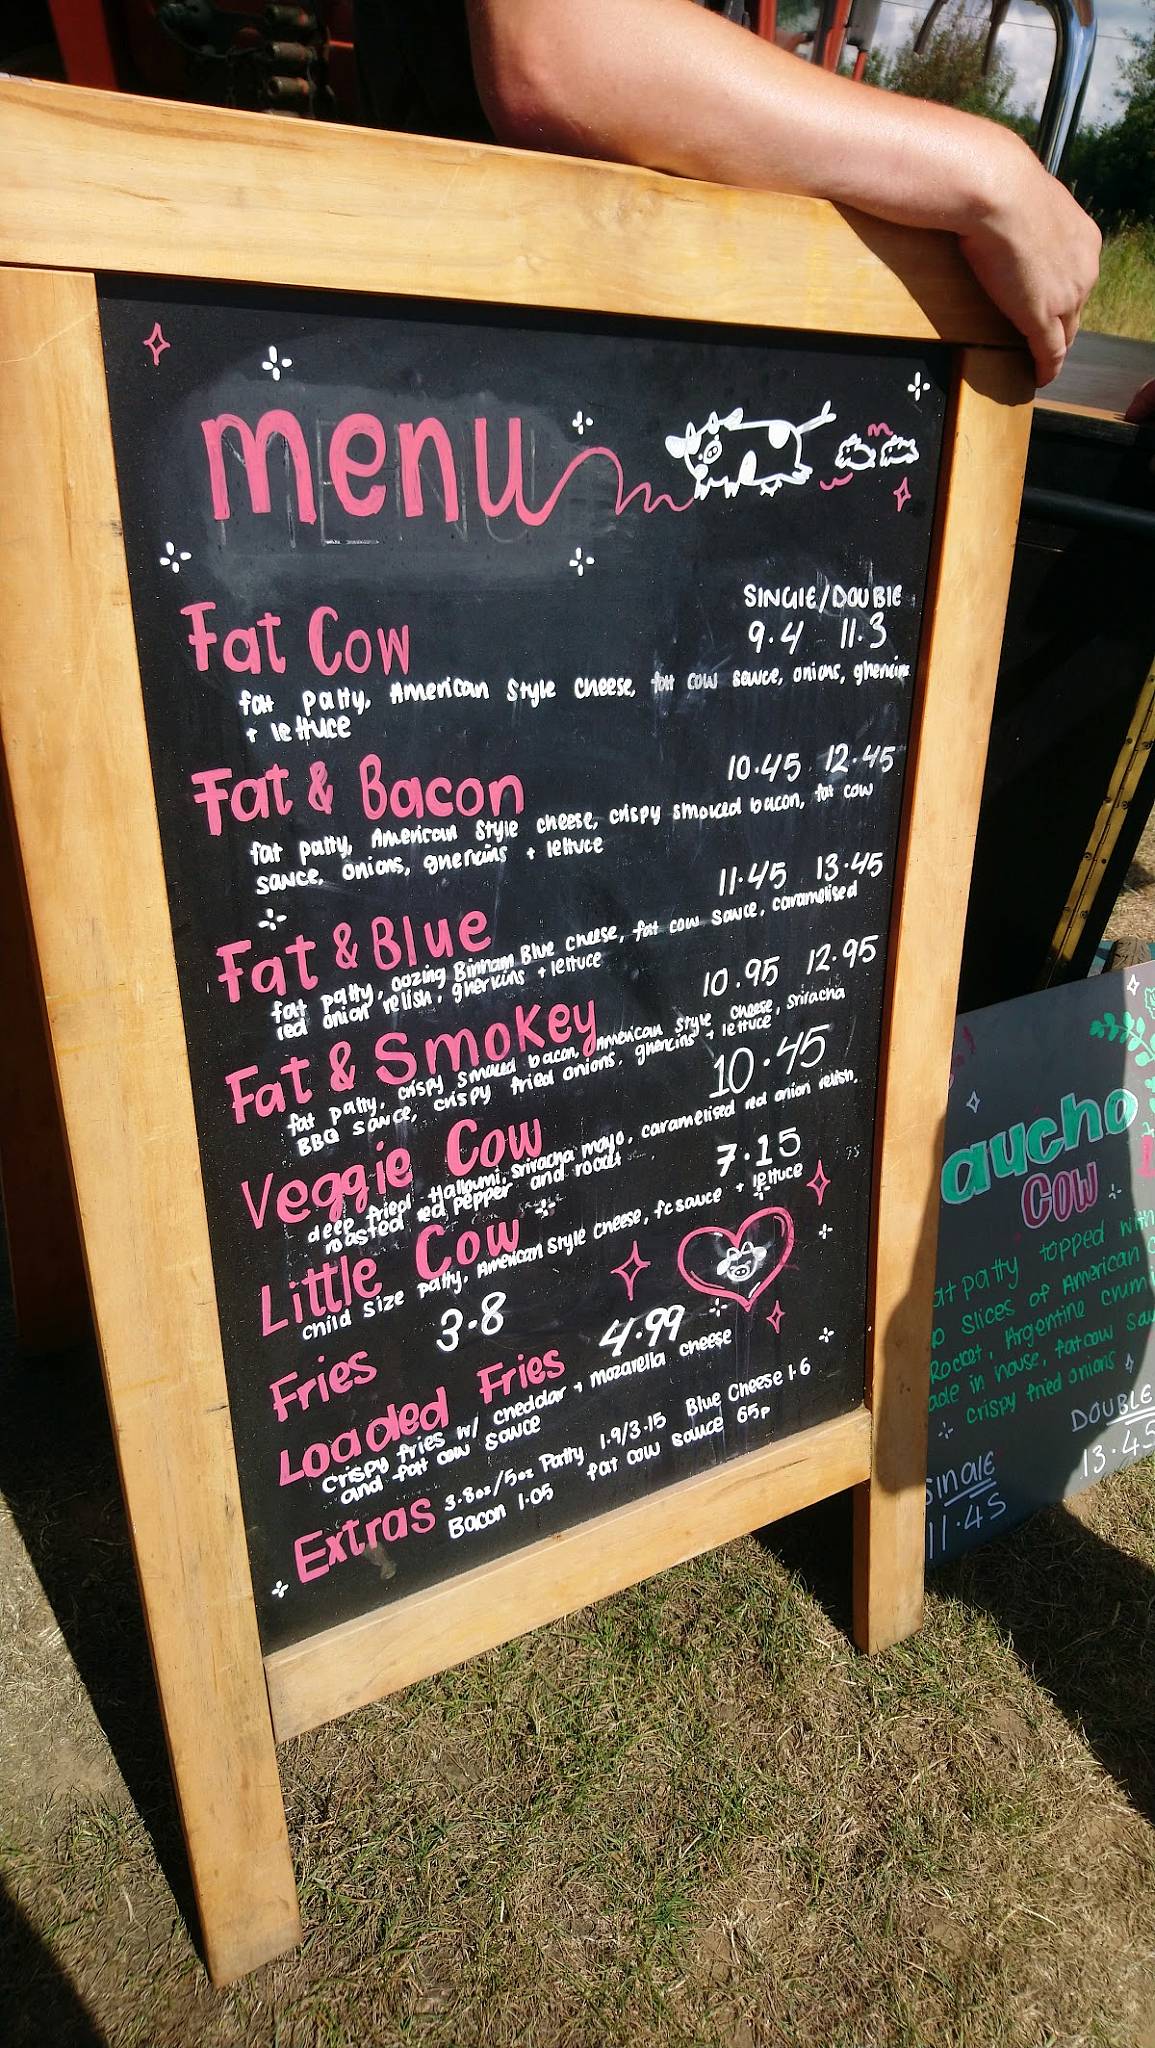 menu
SINGLE/DOUBLE
Fat Cow 9.4 11.3
fat patty, American style cheese, fat cow sauce, onions, gherkins
+ lettuce
Fat & Bacon 10.45 12.45
fat patty, American style cheese, crispy smoked bacon, fat cow
sauce, onions, gherkins + lettuce
Fat & Blue 11.45 13.45
fat patty, oozing Binham Blue cheese, fat cow sauce, caramelised
red onion relish, gherkins + lettuce
Fat & Smokey 10.95 12.95
fat patty, crispy smoked bacon, American style cheese, sriracha
BBQ sauce, crispy fried onions, gherkins + lettuce
Veggie Cow 10.45
deep fried Halloumi, sriracha mayo, caramelised red onion relish,
roasted red pepper and rocket
Little Cow 7.15
child size patty, American style cheese, fc sauce + lettuce
Fries 3.8
Loaded Fries 4.99
crispy fries w/ cheddar + mozarella cheese
and fat cow sauce
Extras 3.8oz/5oz Patty 1.9/3.15 Blue Cheese 1.6
Bacon 1.05 fat cow sauce 65p
aucho
COW
at patty topped with
o slices of American
Rocket, Argentine
ade in house, fat cow
crispy fried onions
DOUBLE
13.45
Single
11.45